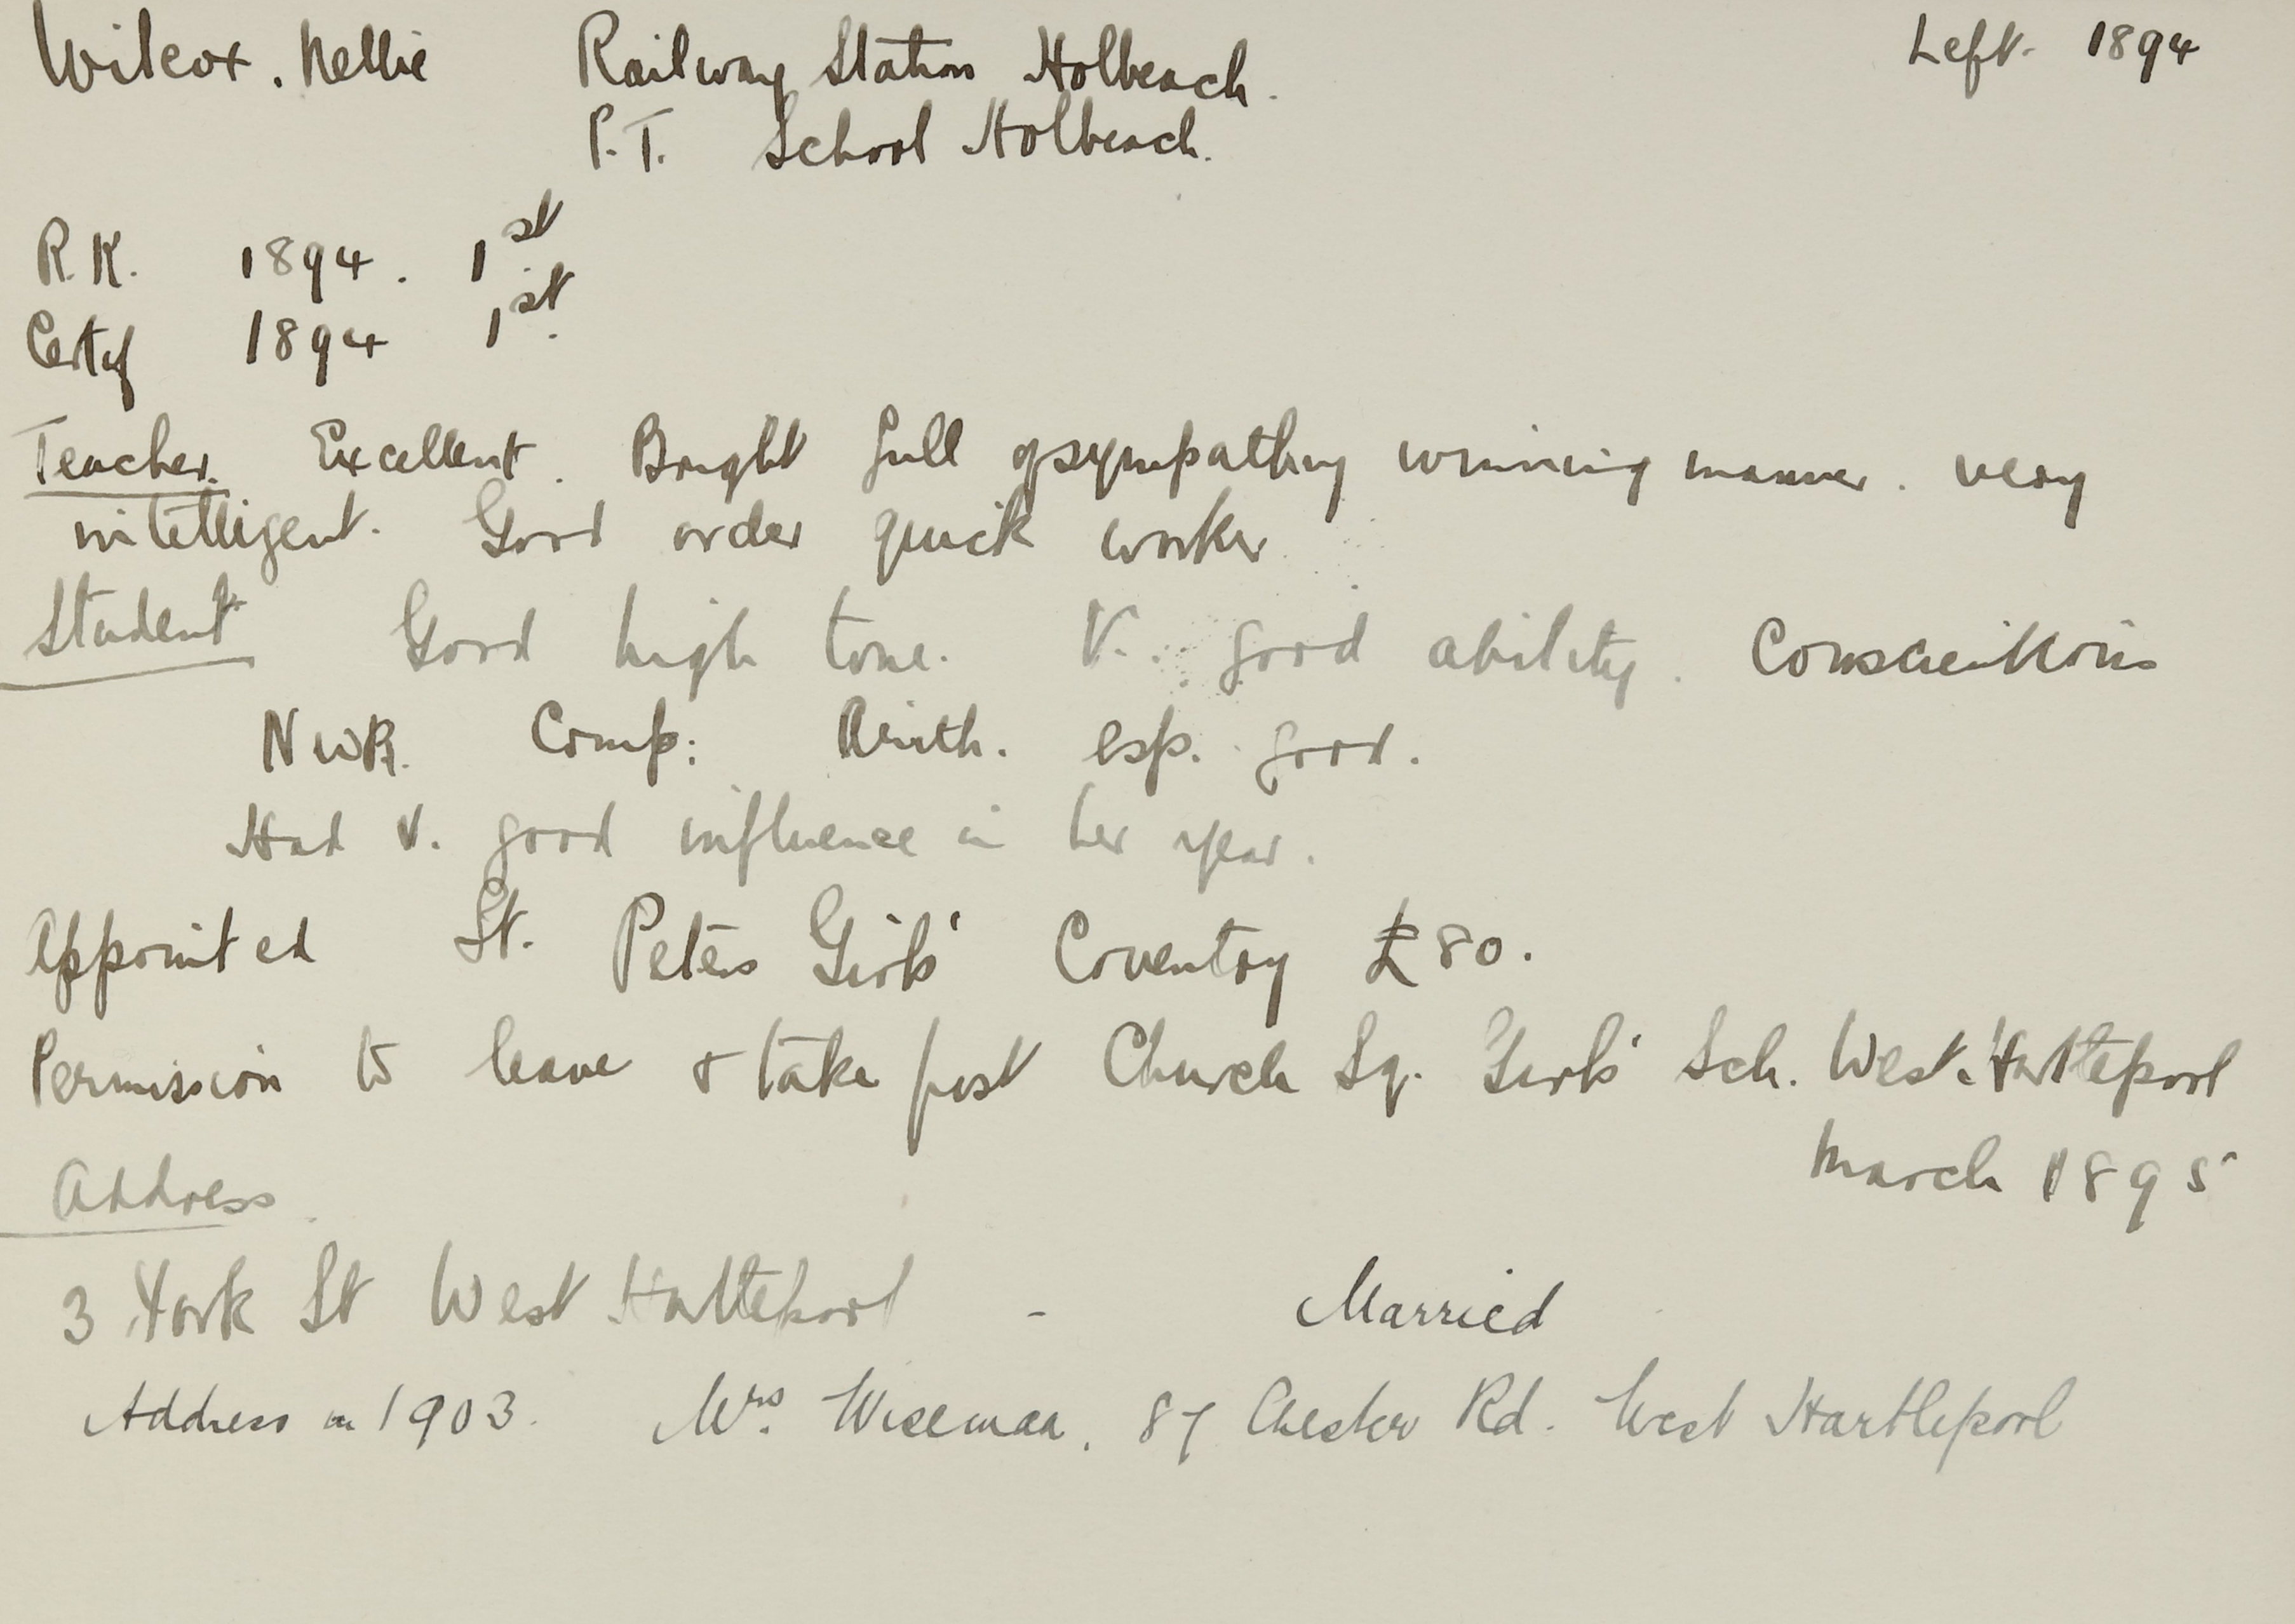 Wilcox. Nellie Railway Station Holbeach. Left. 1894
P.T. School Holbeach.
R.K. 1894. 1st
Certif 1894 1st.
Teacher. Excellent. Bright full of sympathy winning manner. very
intelligent. Good order quick worker
Student Good high tone. V. good ability. Conscientious
NWR. Comp: Arith. esp. good.
Had v. good influence in her year.
Appointed St. Peters Girls' Coventry £80.
Permission to leave & take post Church Sq. Girls' Sch. West Hartlepool
March 1895
Address
3 York St West Hartlepool - Married
Address in 1903. Mrs. Wiseman, 87 Chester Rd. West Hartlepool